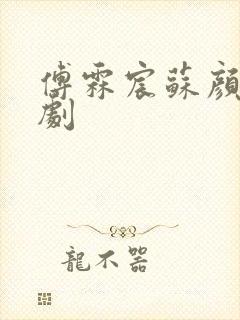 傅霖宸蘇顔
劇
龍不器